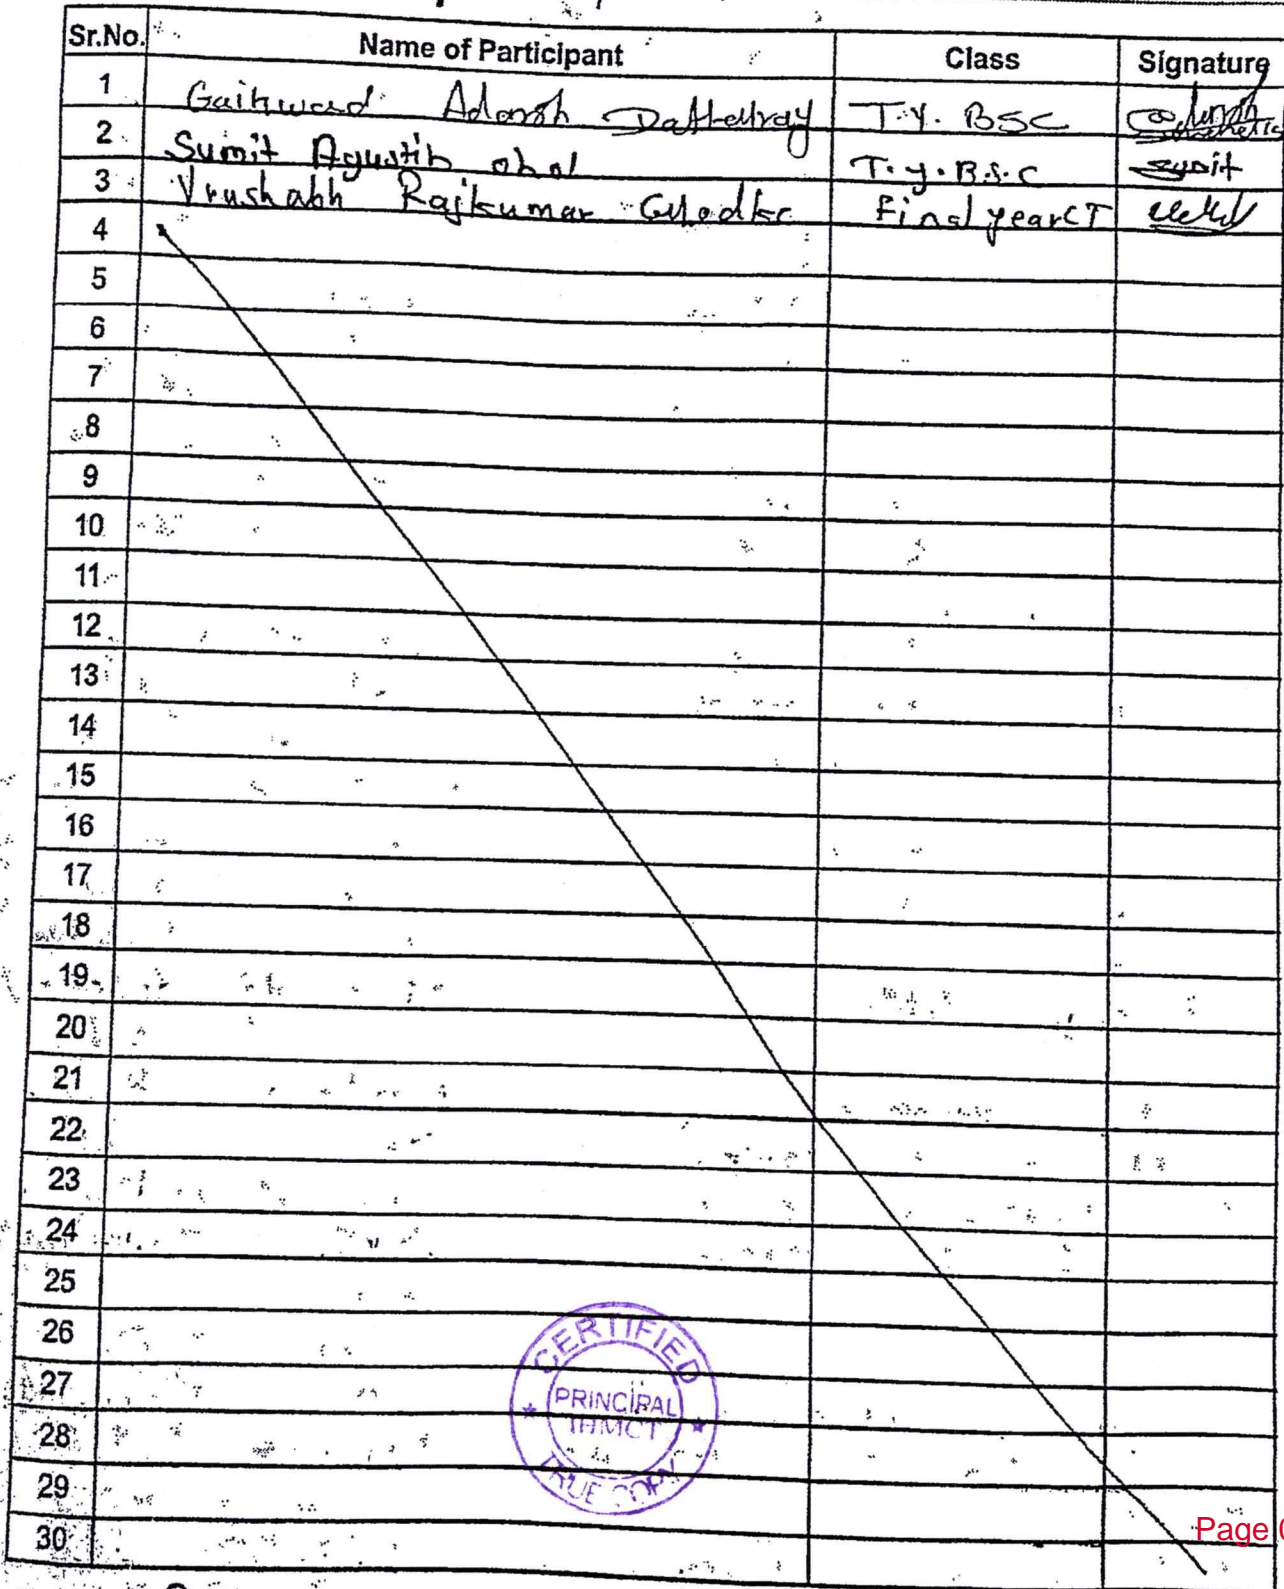 Sr.No. Name of Participant Class Signature
1 Gaikwad Adarsh Dattatray T.Y. BSC
2 Sumit Agustin ohol T.y.B.S.C Sumit
3 Vrushabh Rajkumar Ghodke Final year CT
4
5
6
7
8
9
10
11
12
13
14
15
16
17
18
19
20
21
22
23
24
25
26
27
28
29
30
CERTIFIED
PRINCIPAL
IHMCT
TRUE COPY
Page